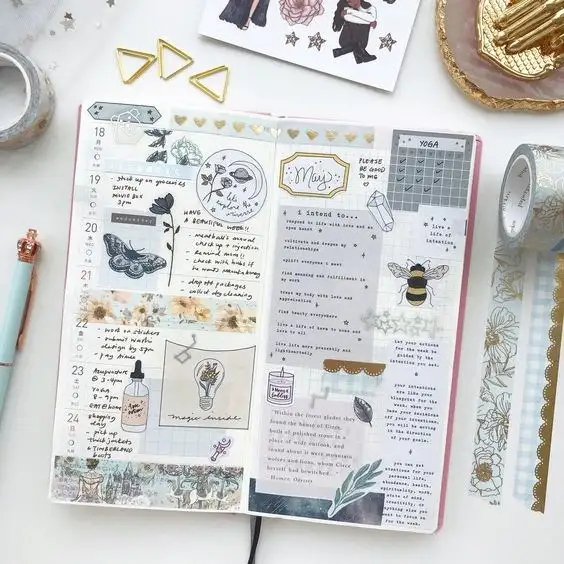 18
月
- stock up on groceries
INSTALL
MOVIE BOX
3PM
19
火
let's
explore the
universe
HAVE
A BEAUTIFUL WEEK!!
- meatball's annual
check up & injection
- Remind mum!!
- check with hubs if
he wants
20
水
WEDNESDAY
- drop off packages
- collect dry cleaning
21
木
22
金
- work on stickers
- submit washi
design by 5pm
- pay aimee
23
土
Acupuncture
@ 3-4pm
YOGA
8-9pm
EAT@HOME
24
日
shopping
day
- pick up
thick jackets
& TIMBERLAND
BOOTS
magic inside
May
PLEASE
BE GOOD
TO ME
YOGA
i intend to...
respond to life with love and an
open heart
cultivate and deepen my
relationships
uplift everyone i meet
find meaning and fulfillment in
my work
treat my body with love and
appreciation
find beauty everywhere
live a life of
live life more presently and
lightheartedly
live a
life of
intention
Let your actions
for the week be
guided by the
intention you set.
your intentions
are like your
blueprint for the
week. when you
base your decisions
off your intentions,
you will be moving
in the direction
of your goals.
you can set
intentions for your
personal life,
abundance, health,
spirituality, work,
state of mind,
creativity, or
anything else you
want to focus on
for the week.
"Within the forest glades they
found the house of Circe,
built of polished stone in a
place of wide outlook, and
round about it were mountain
wolves and lions, whom Circe
herself had bewitched..."
—Homer, Odyssey